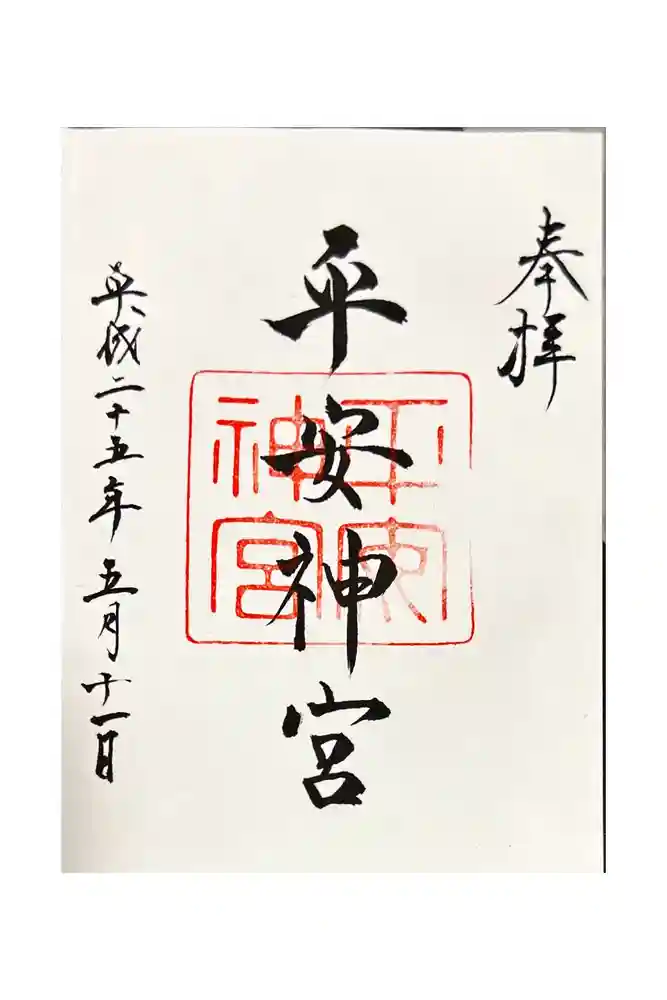 奉拝
平安神宮
平安神宮
平成二十五年五月十一日